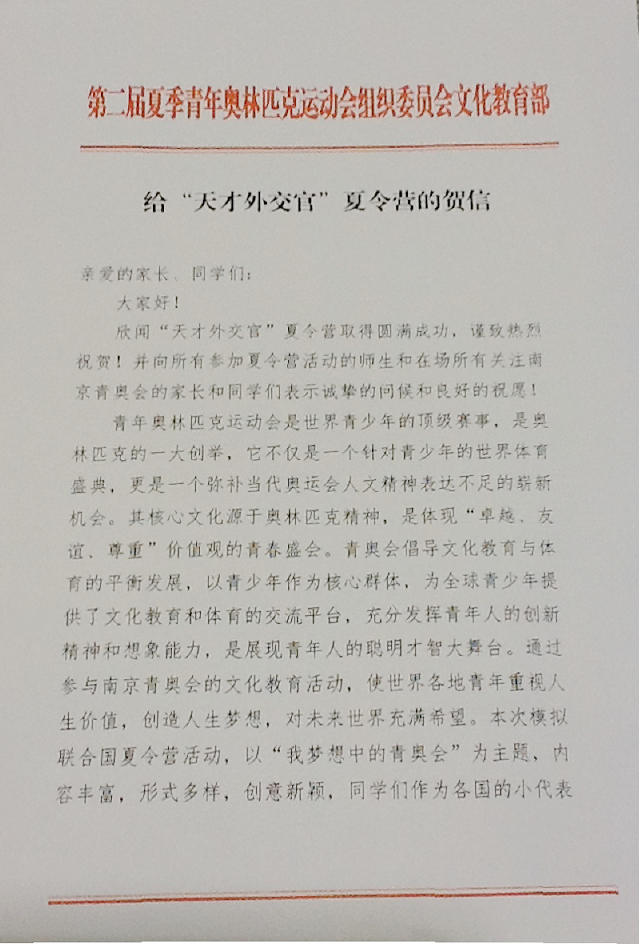 第二届夏季青年奥林匹克运动会组织委员会文化教育部
给“天才外交官”夏令营的贺信
亲爱的家长、同学们：
大家好！
欣闻“天才外交官”夏令营取得圆满成功，谨致热烈
祝贺！并向所有参加夏令营活动的师生和在场所有关注南
京青奥会的家长和同学们表示诚挚的问候和良好的祝愿！
青年奥林匹克运动会是世界青少年的顶级赛事，是奥
林匹克的一大创举，它不仅是一个针对青少年的世界体育
盛典，更是一个弥补当代奥运会人文精神表达不足的崭新
机会。其核心文化源于奥林匹克精神，是体现“卓越、友
谊、尊重”价值观的青春盛会。青奥会倡导文化教育与体
育的平衡发展，以青少年作为核心群体，为全球青少年提
供了文化教育和体育的交流平台，充分发挥青年人的创新
精神和想象能力，是展现青年人的聪明才智大舞台。通过
参与南京青奥会的文化教育活动，使世界各地青年重视人
生价值，创造人生梦想，对未来世界充满希望。本次模拟
联合国夏令营活动，以“我梦想中的青奥会”为主题，内
容丰富，形式多样，创意新颖，同学们作为各国的小代表